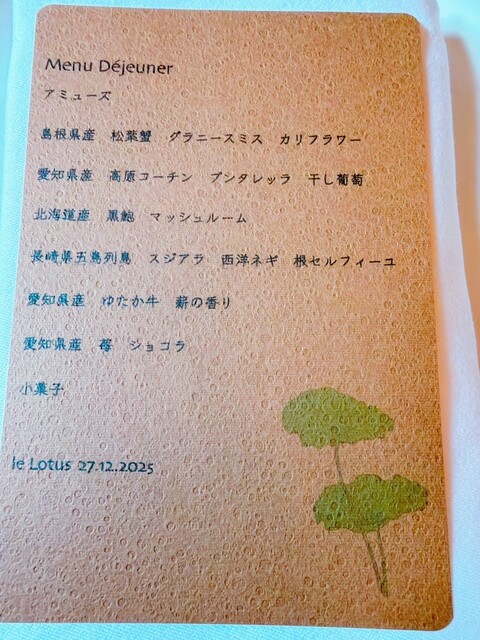 Menu Déjeuner
アミューズ
島根県産　松葉蟹　グラニースミス　カリフラワー
愛知県産　高原コーチン　プンタレッラ　干し葡萄
北海道産　黒鮑　マッシュルーム
長崎県五島列島　スジアラ　西洋ネギ　根セルフィーユ
愛知県産　ゆたか牛　薪の香り
愛知県産　苺　ショコラ
小菓子
le Lotus 27.12.2025